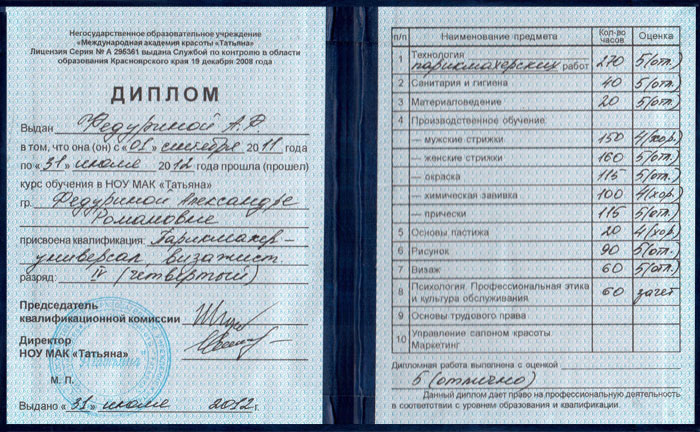 Негосударственное образовательное учреждение
«Международная академия красоты «Татьяна»
Лицензия Серия № А 295361 выдана Службой по контролю в области
образования Красноярского края 19 декабря 2008 года
ДИПЛОМ
Выдан Федуриной А.Р.
в том, что она (он) с «01» сентября 2011 года
по «31» июля 2012 года прошла (прошел)
курс обучения в НОУ МАК «Татьяна»
гр. Федуриной Александре
Романовне
присвоена квалификация: Парикмахер-
универсал, визажист.
разряд: IV (четвёртый)
Председатель
квалификационной комиссии
Директор
НОУ МАК «Татьяна»
М. П.
Выдано «31» июля 2012 г.
п/п Наименование предмета Кол-во часов Оценка
1 Технология парикмахерских работ 270 5(отл.)
2 Санитария и гигиена 40 5(отл.)
3 Материаловедение 20 5(отл.)
4 Производственное обучение:
— мужские стрижки 150 4(хор.)
— женские стрижки 160 5(отл.)
— окраска 115 5(отл.)
— химическая завивка 100 4(хор.)
— прически 115 5(отл.)
5 Основы пастижа 20 4(хор.)
6 Рисунок 90 5(отл.)
7 Визаж 60 5(отл.)
8 Психология. Профессиональная этика и культура обслуживания. 60 зачет
9 Основы трудового права
10 Управление салоном красоты. Маркетинг
Дипломная работа выполнена с оценкой
5 (отлично)
Данный диплом дает право на профессиональную деятельность
в соответствии с уровнем образования и квалификации.